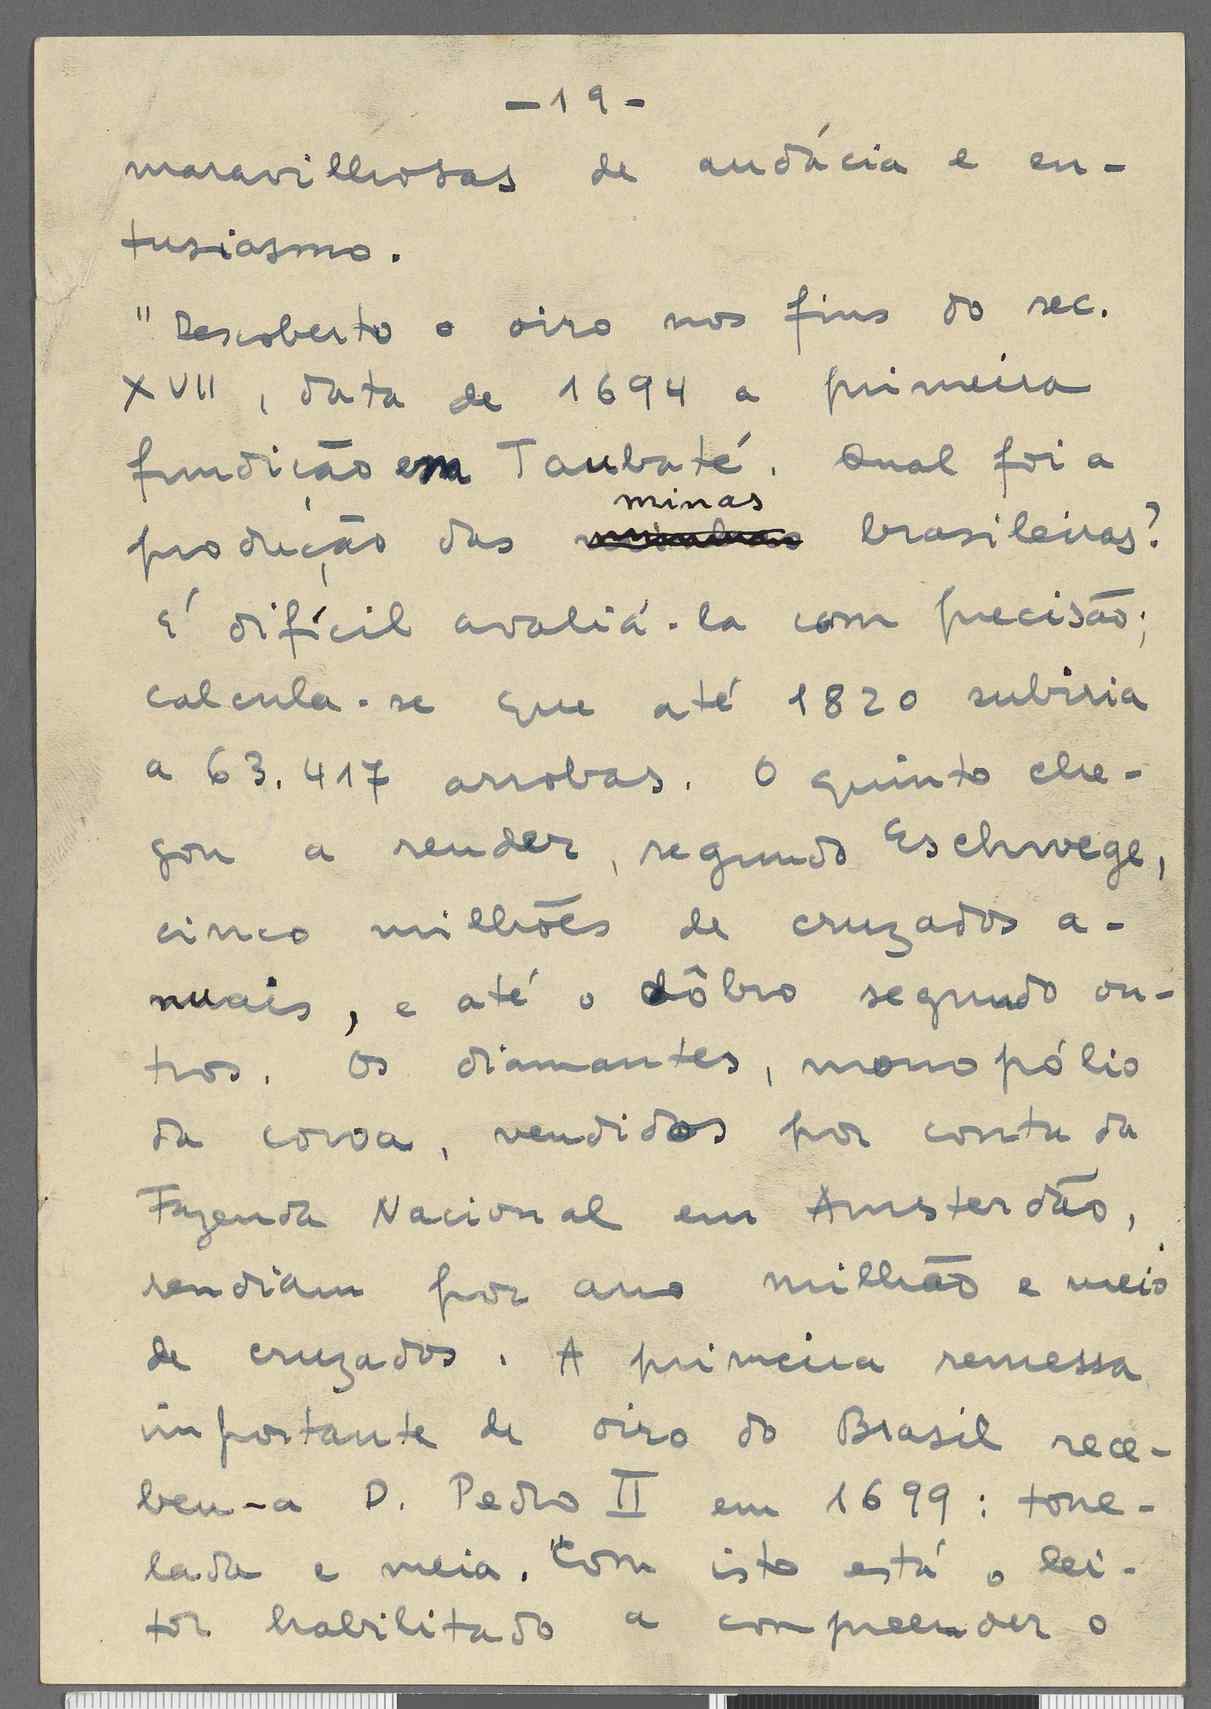 -19-
maravilhosas de audácia e en-
tusiasmo.
"Descoberto o oiro nos fins do sec.
XVII, data de 1694 a primeira
fundição em Taubaté. Qual foi a
minas
produção das brasileiras?
É difícil avaliá-la com precisão;
calcula-se que até 1820 subiria
a 63.417 arrobas. O quinto che-
gou a render, segundo Eschwege,
cinco milhões de cruzados a-
nuais, e até o dôbro segundo ou-
tros. Os diamantes, monopólio
da coroa, vendidos por conta da
Fazenda Nacional em Amsterdão,
rendiam por ano milhão e meio
de cruzados. A primeira remessa
importante de oiro do Brasil rece-
beu-a D. Pedro II em 1699: tone-
lada e meia." Com isto está o lei-
tor habilitado a compreender o